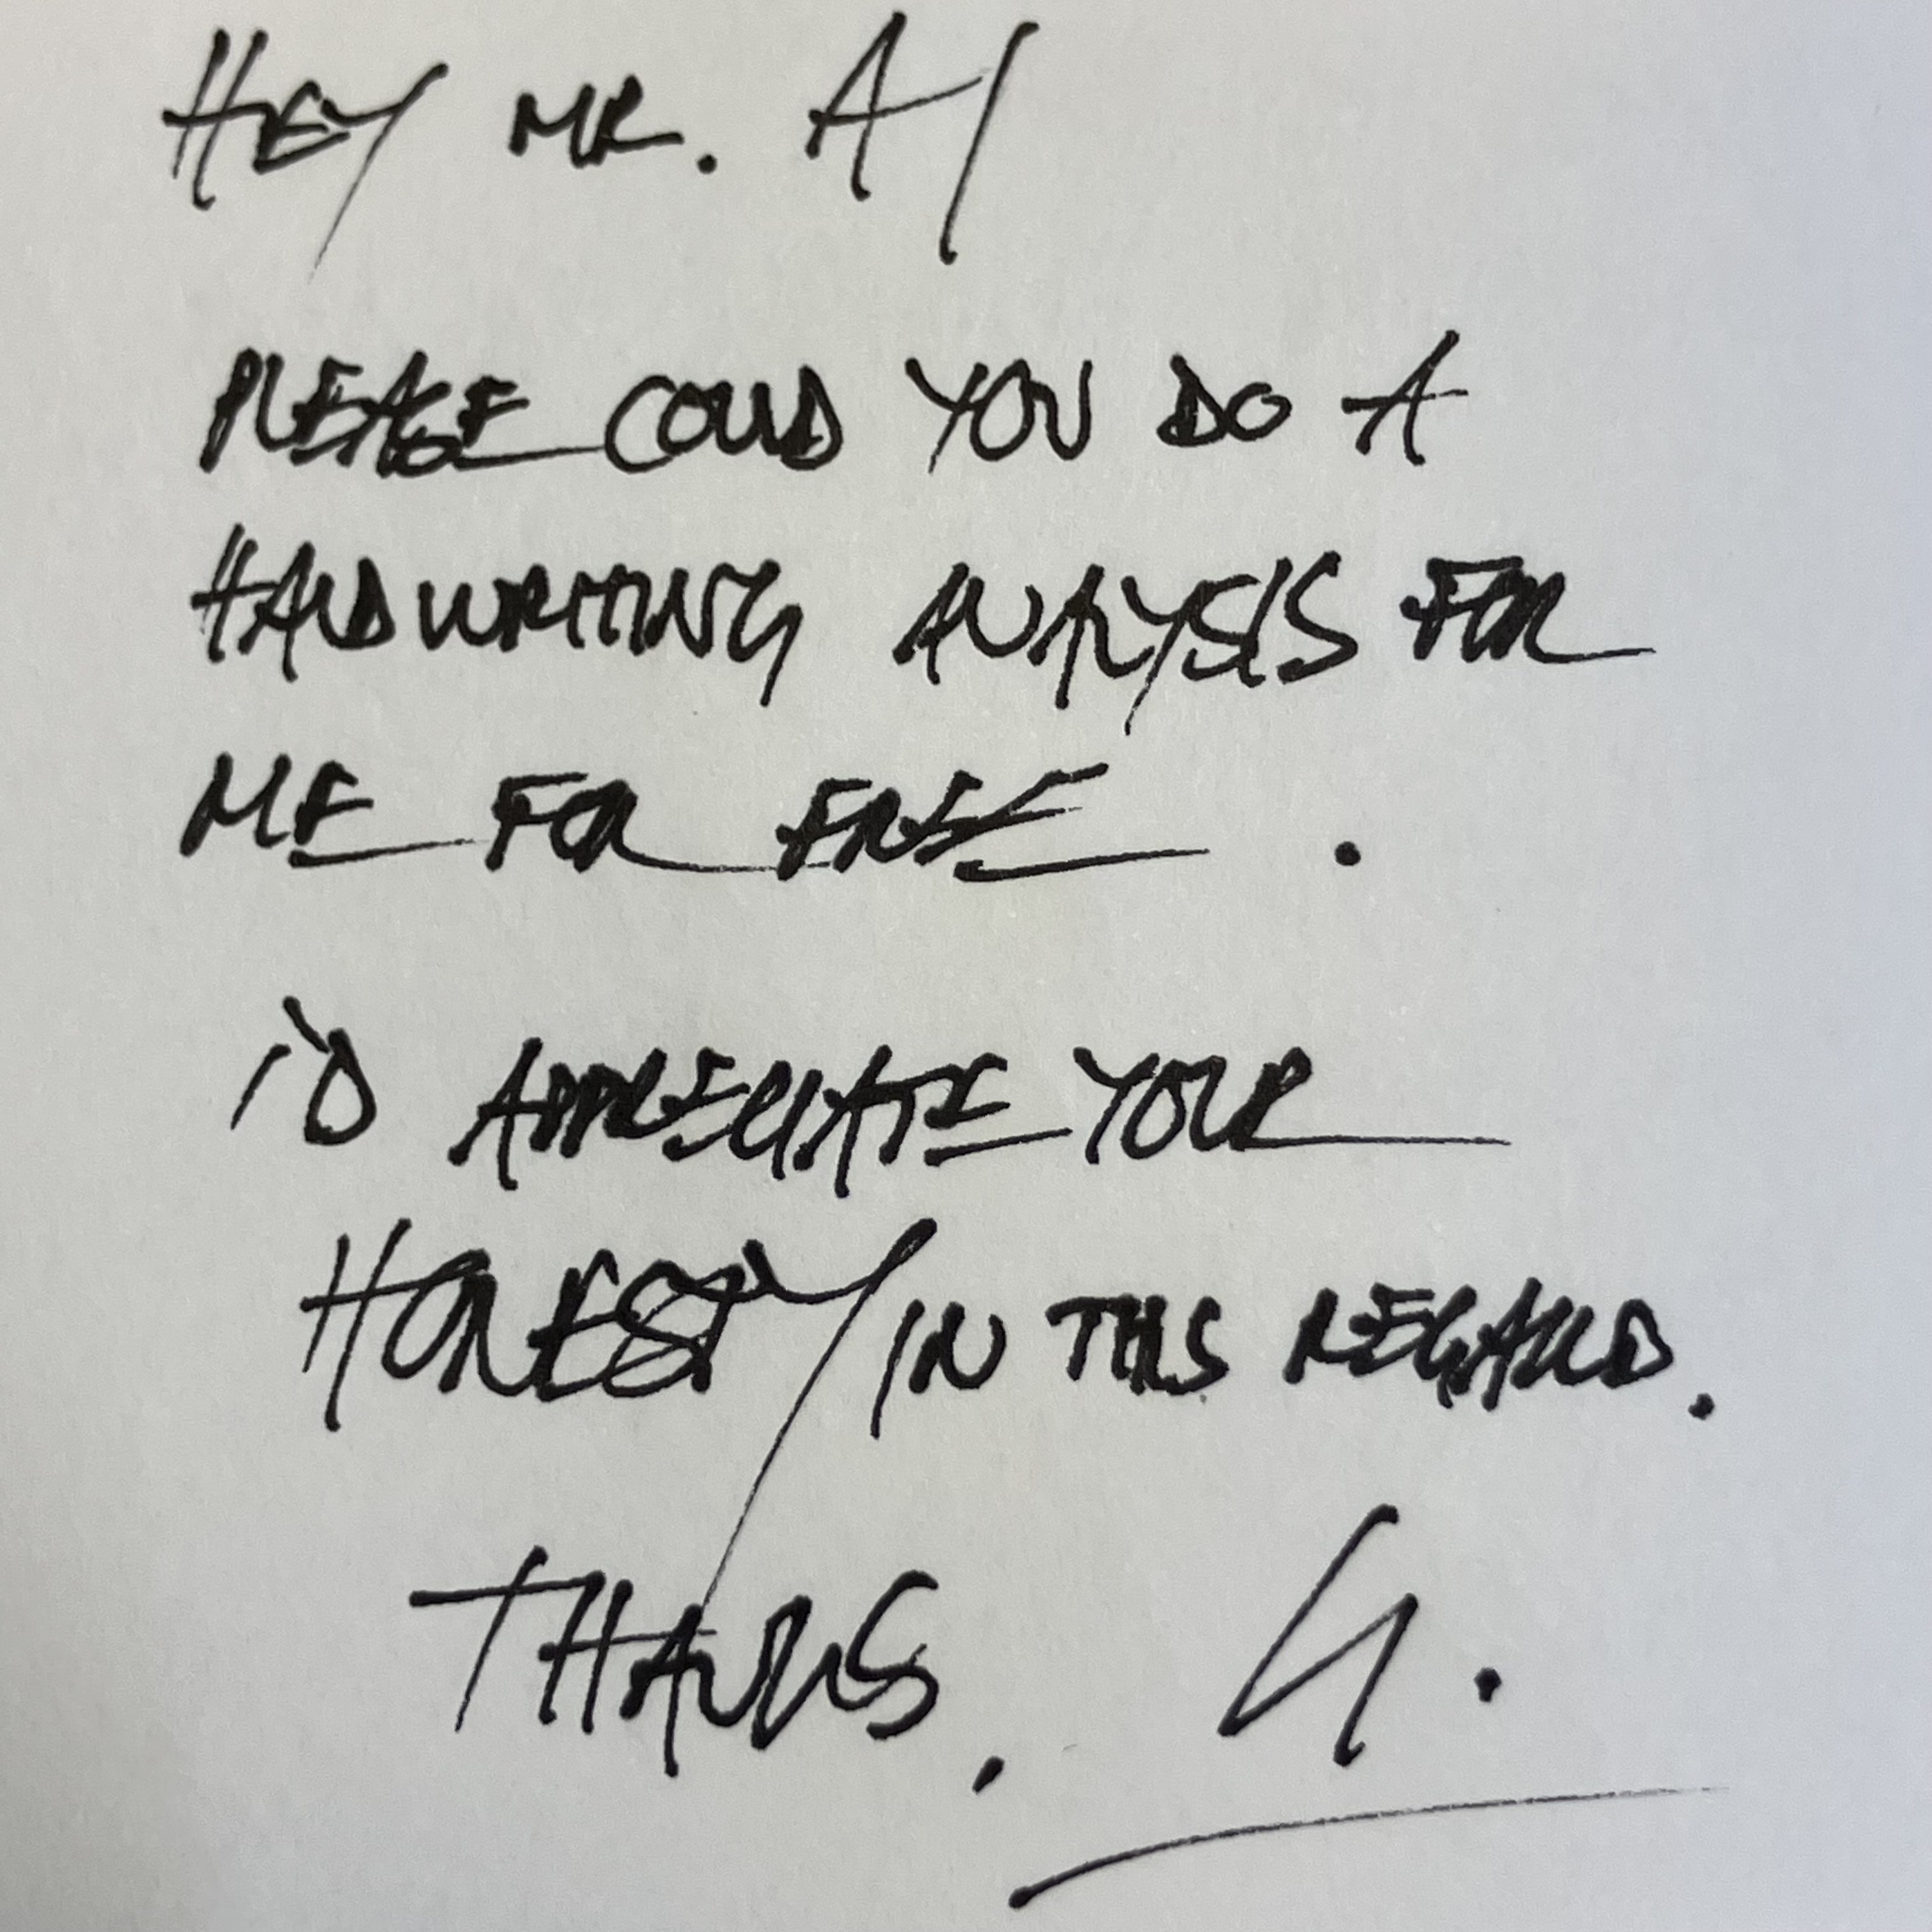 HEY MR. AI
PLEASE COULD YOU DO A
HANDWRITING ANALYSIS FOR
ME FOR FREE .
I'D APPRECIATE YOUR
HONESTY IN THIS REGARD.
THANKS. G.